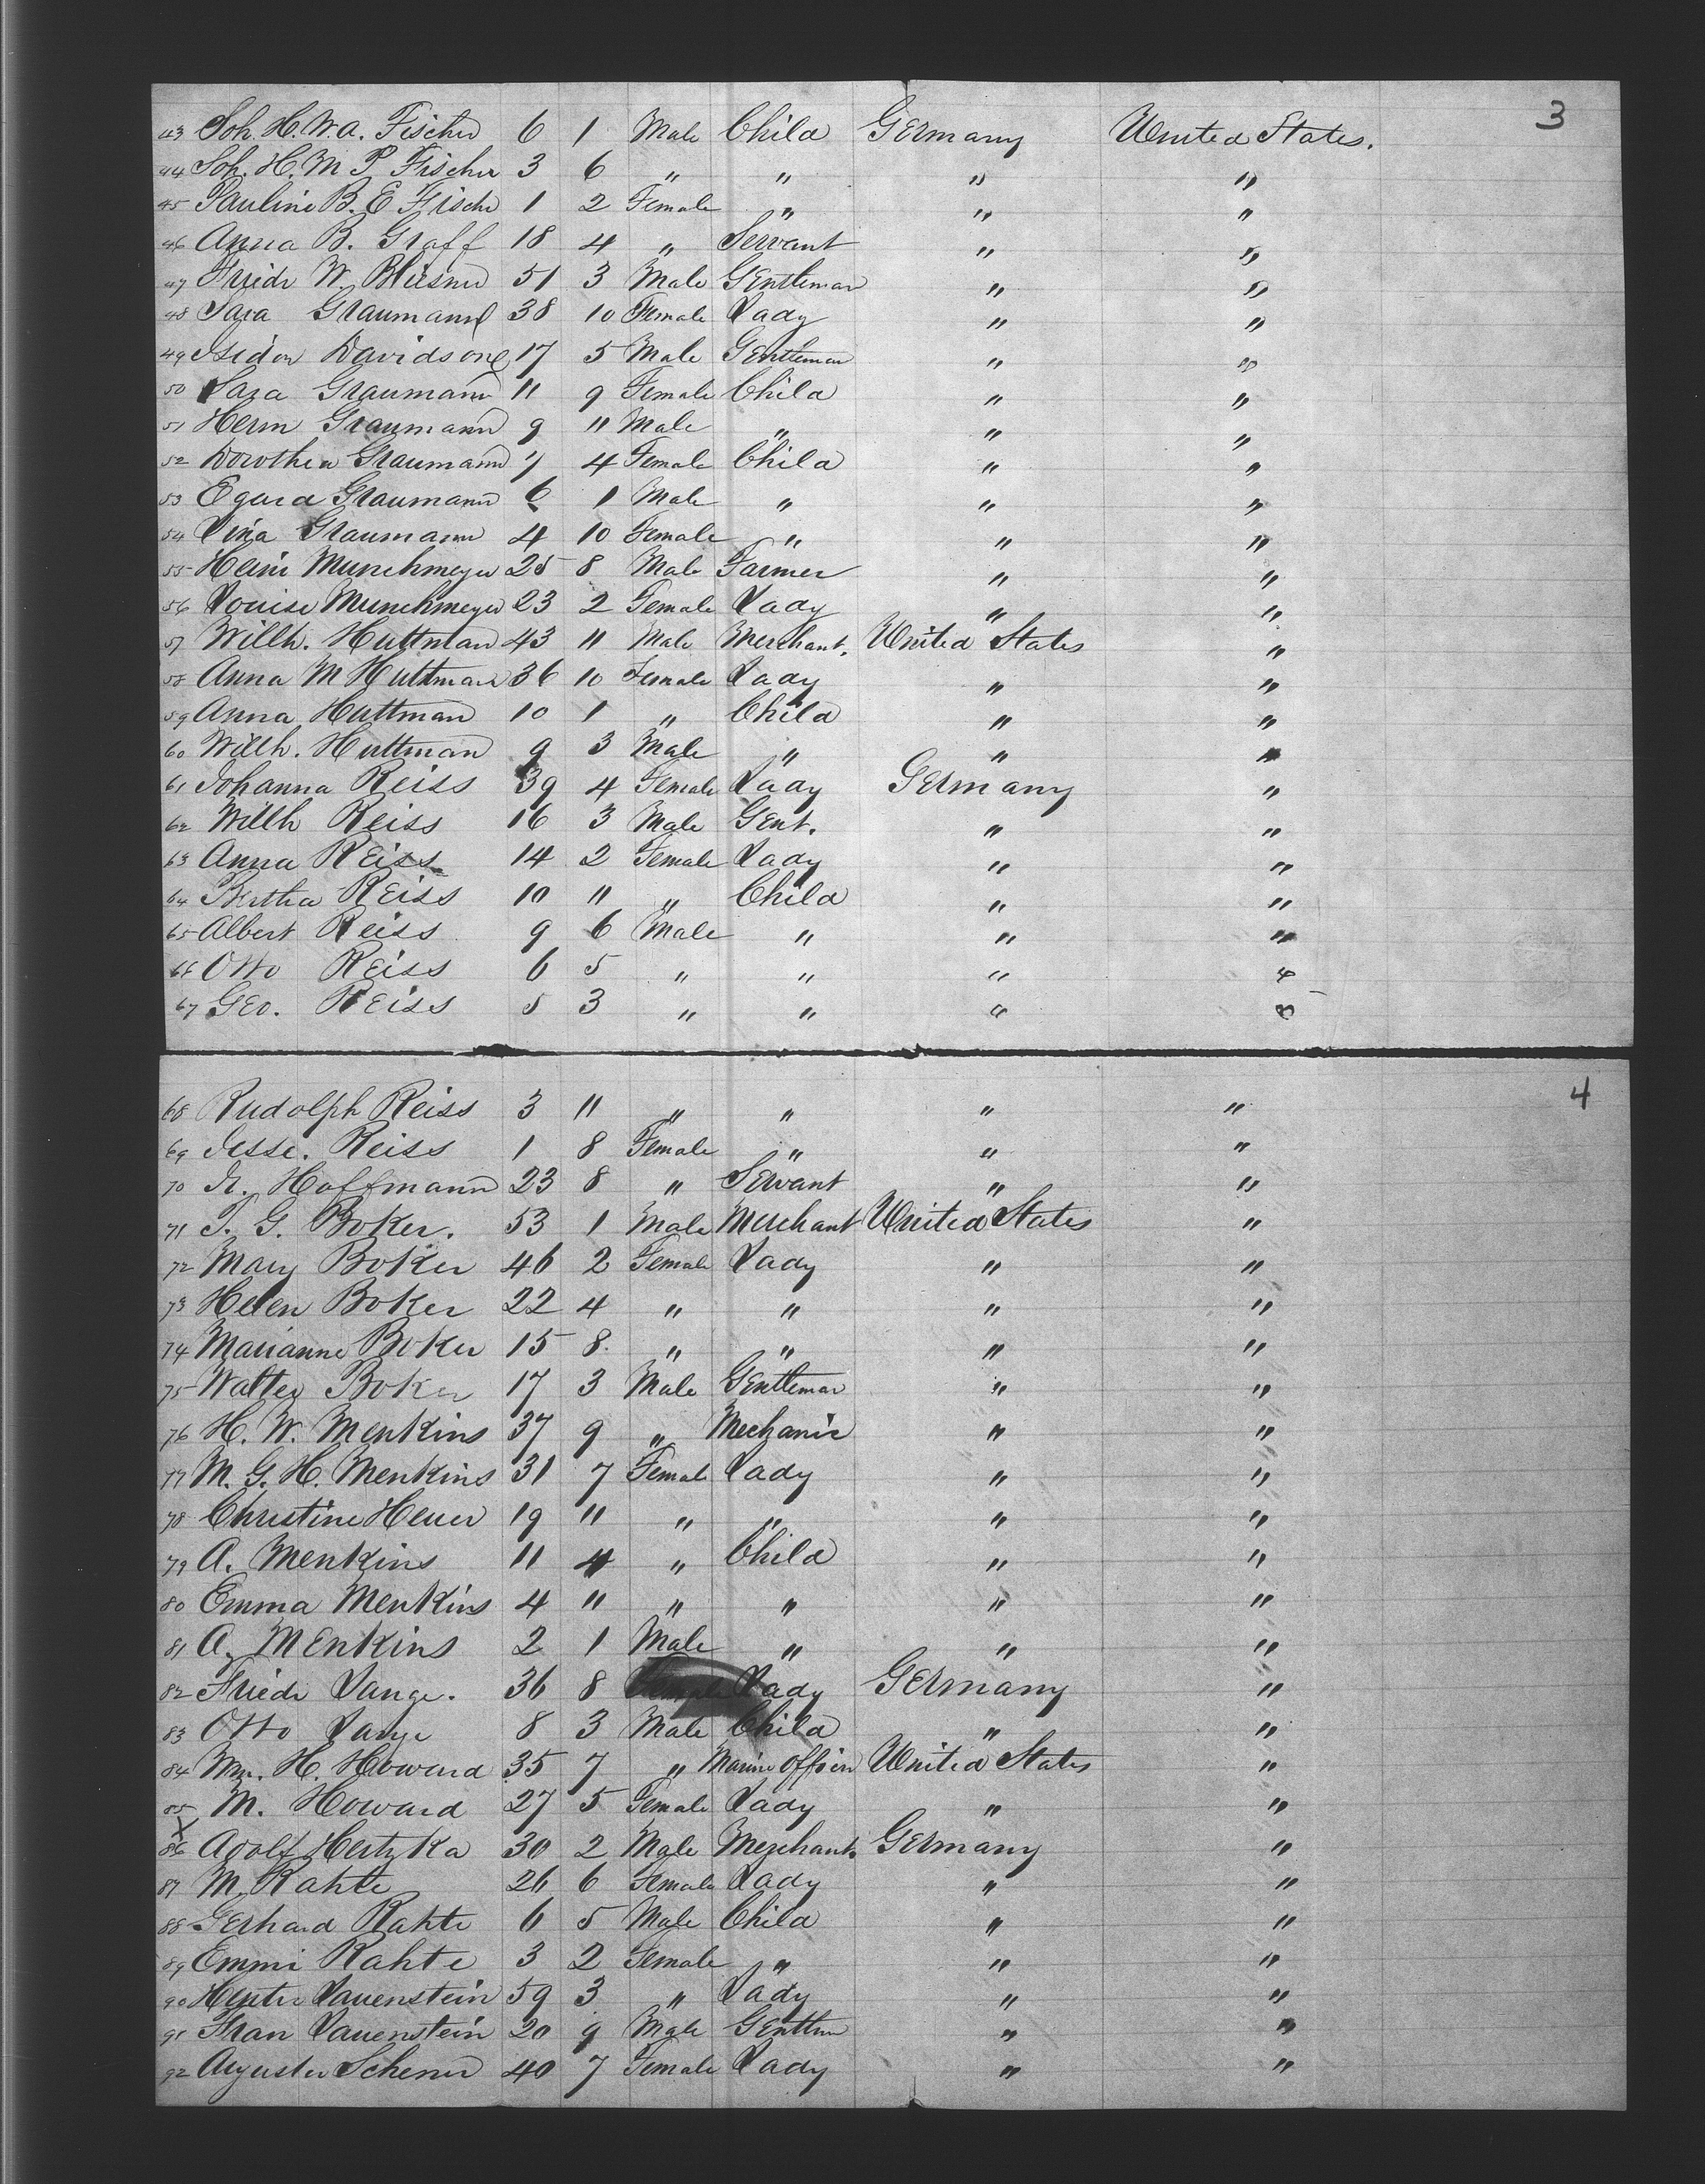 3
43 Joh. H. W. A. Fischer 6 1 Male Child Germany United States.
44 Joh. H. M. P. Fischer 3 6 " " " "
45 Pauline B. E Fische 1 2 Female " " "
46 Anna B. Graff 18 4 " Servant " "
47 Friedr W. 51 3 Male Gentleman " "
48 Sara Graumann 38 10 Female Lady " "
49 Isidor Davidsone 17 5 Male Gentleman " "
50 Sara Graumann 11 9 Female Child " "
51 Herm Graumann 9 11 Male " " "
52 Dorothea Graumann 7 4 Female Child " "
53 Graumann 6 1 Male " " "
54 Lina Graumann 4 10 Female " " "
55 Heinr Munchmeyer 25 8 Male Farmer " "
56 Louise Munchmeyer 23 2 Female Lady " "
57 Willh. Huttman 43 11 Male Merchant. United States "
58 Anna M Huttman 36 10 Female Lady " "
59 Anna Huttman 10 1 " Child " "
60 Willh. Huttman 9 3 Male " " "
61 Johanna Reiss 39 4 Female Lady Germany "
62 Willh Reiss 16 3 Male Gent. " "
63 Anna Reiss 14 2 Female Lady " "
64 Bertha Reiss 10 11 " Child " "
65 Albert Reiss 9 6 Male " " "
66 Otto Reiss 6 5 " " " "
67 Geo. Reiss 5 3 " " " "
4
68 Rudolph Reiss 3 11 " " " "
69 Jesse. Reiss 1 8 Female " " "
70 Hoffmann 23 8 " Servant " "
71 T. G. Boker. 53 1 Male Merchant United States "
72 Mary Boker 46 2 Female Lady " "
73 Helen Boker 22 4 " " " "
74 Marianne Boker 15 8. " " " "
75 Walter Boker 17 3 Male Gentleman " "
76 H. W. Menkins 37 9 " Mechanic " "
77 M. G. H. Menkins 31 7 Female Lady " "
78 Christine Heuer 19 11 " " " "
79 A. Menkins 11 4 " Child " "
80 Emma Menkins 4 11 " " " "
81 A. Menkins 2 1 Male " " "
82 Friedr Lange. 36 8 Female Lady Germany "
83 Otto Lange 8 3 Male Child " "
84 Wm. H. Howard 35 7 " Marine Officer United States "
85 M. Howard 27 5 Female Lady " "
X
86 Adolf Hertzka 30 2 Male Merchant. Germany "
87 M. Rahte 26 6 Female Lady " "
88 Gerhard Rahte 6 5 Male Child " "
89 Emmi Rahte 3 2 Female " " "
90 Lauenstein 59 3 " Lady " "
91 Fran Lauenstein 20 9 Male Gentlm " "
92 Auguste 40 7 Female Lady " "